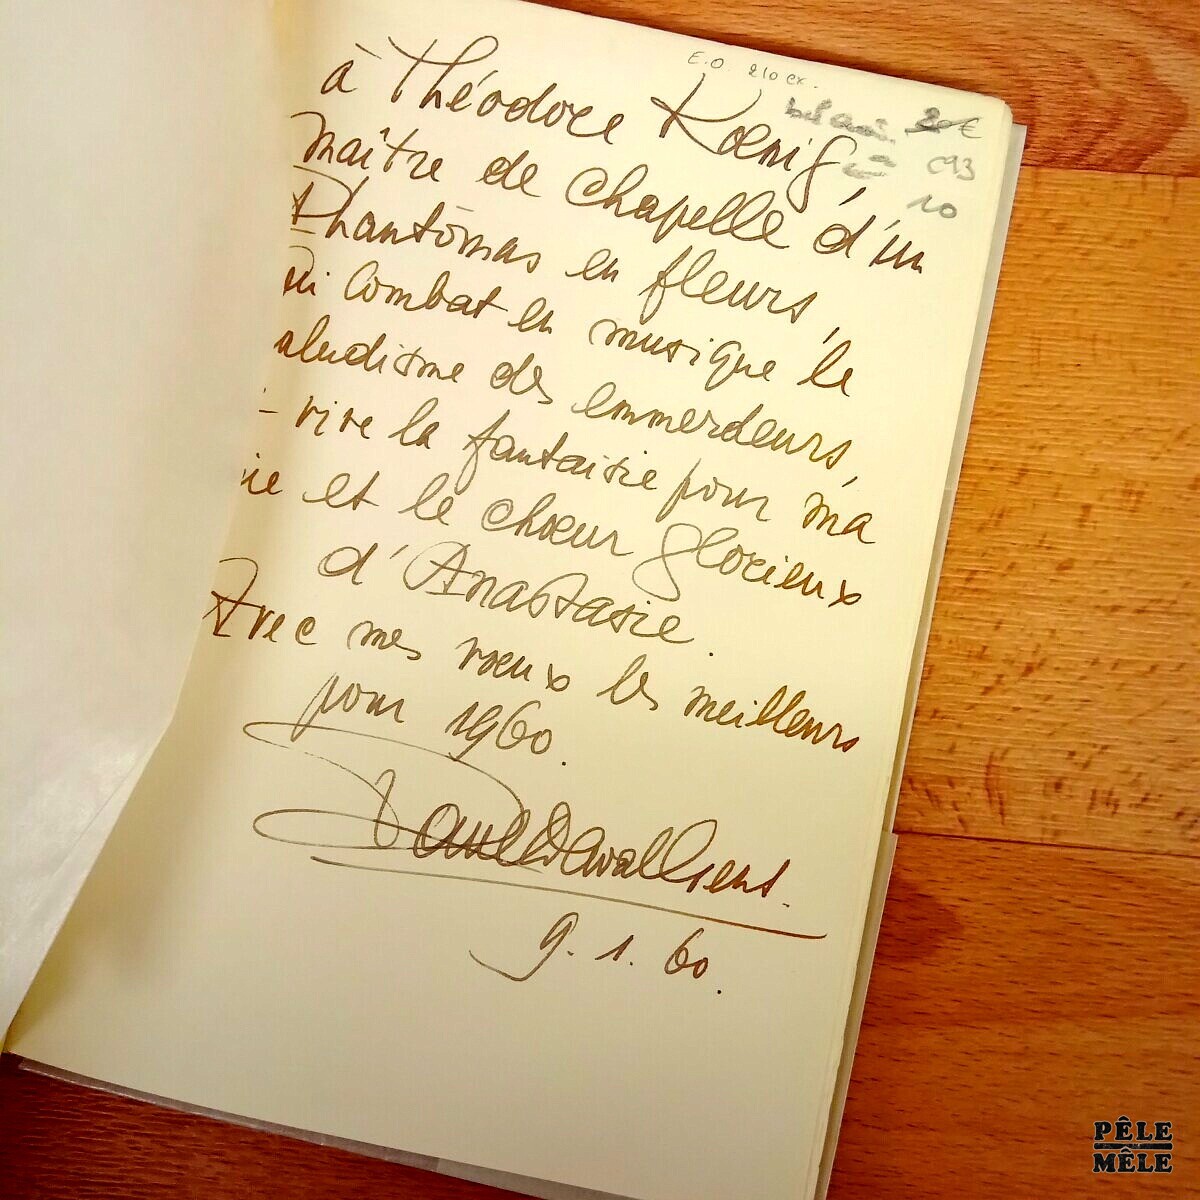 E.O. 210 ex.
20€
C93
10
à Théodore Kœnig,
maître de chapelle d'un
Phantômas en fleurs,
qui combat en musique le
paludisme des emmerdeurs,
- vive la fantaisie pour ma
vie et le chœur glorieux
d'Anastasie.
Avec mes vœux les meilleurs
pour 1960.
9.1.60.
PÊLE
MÊLE